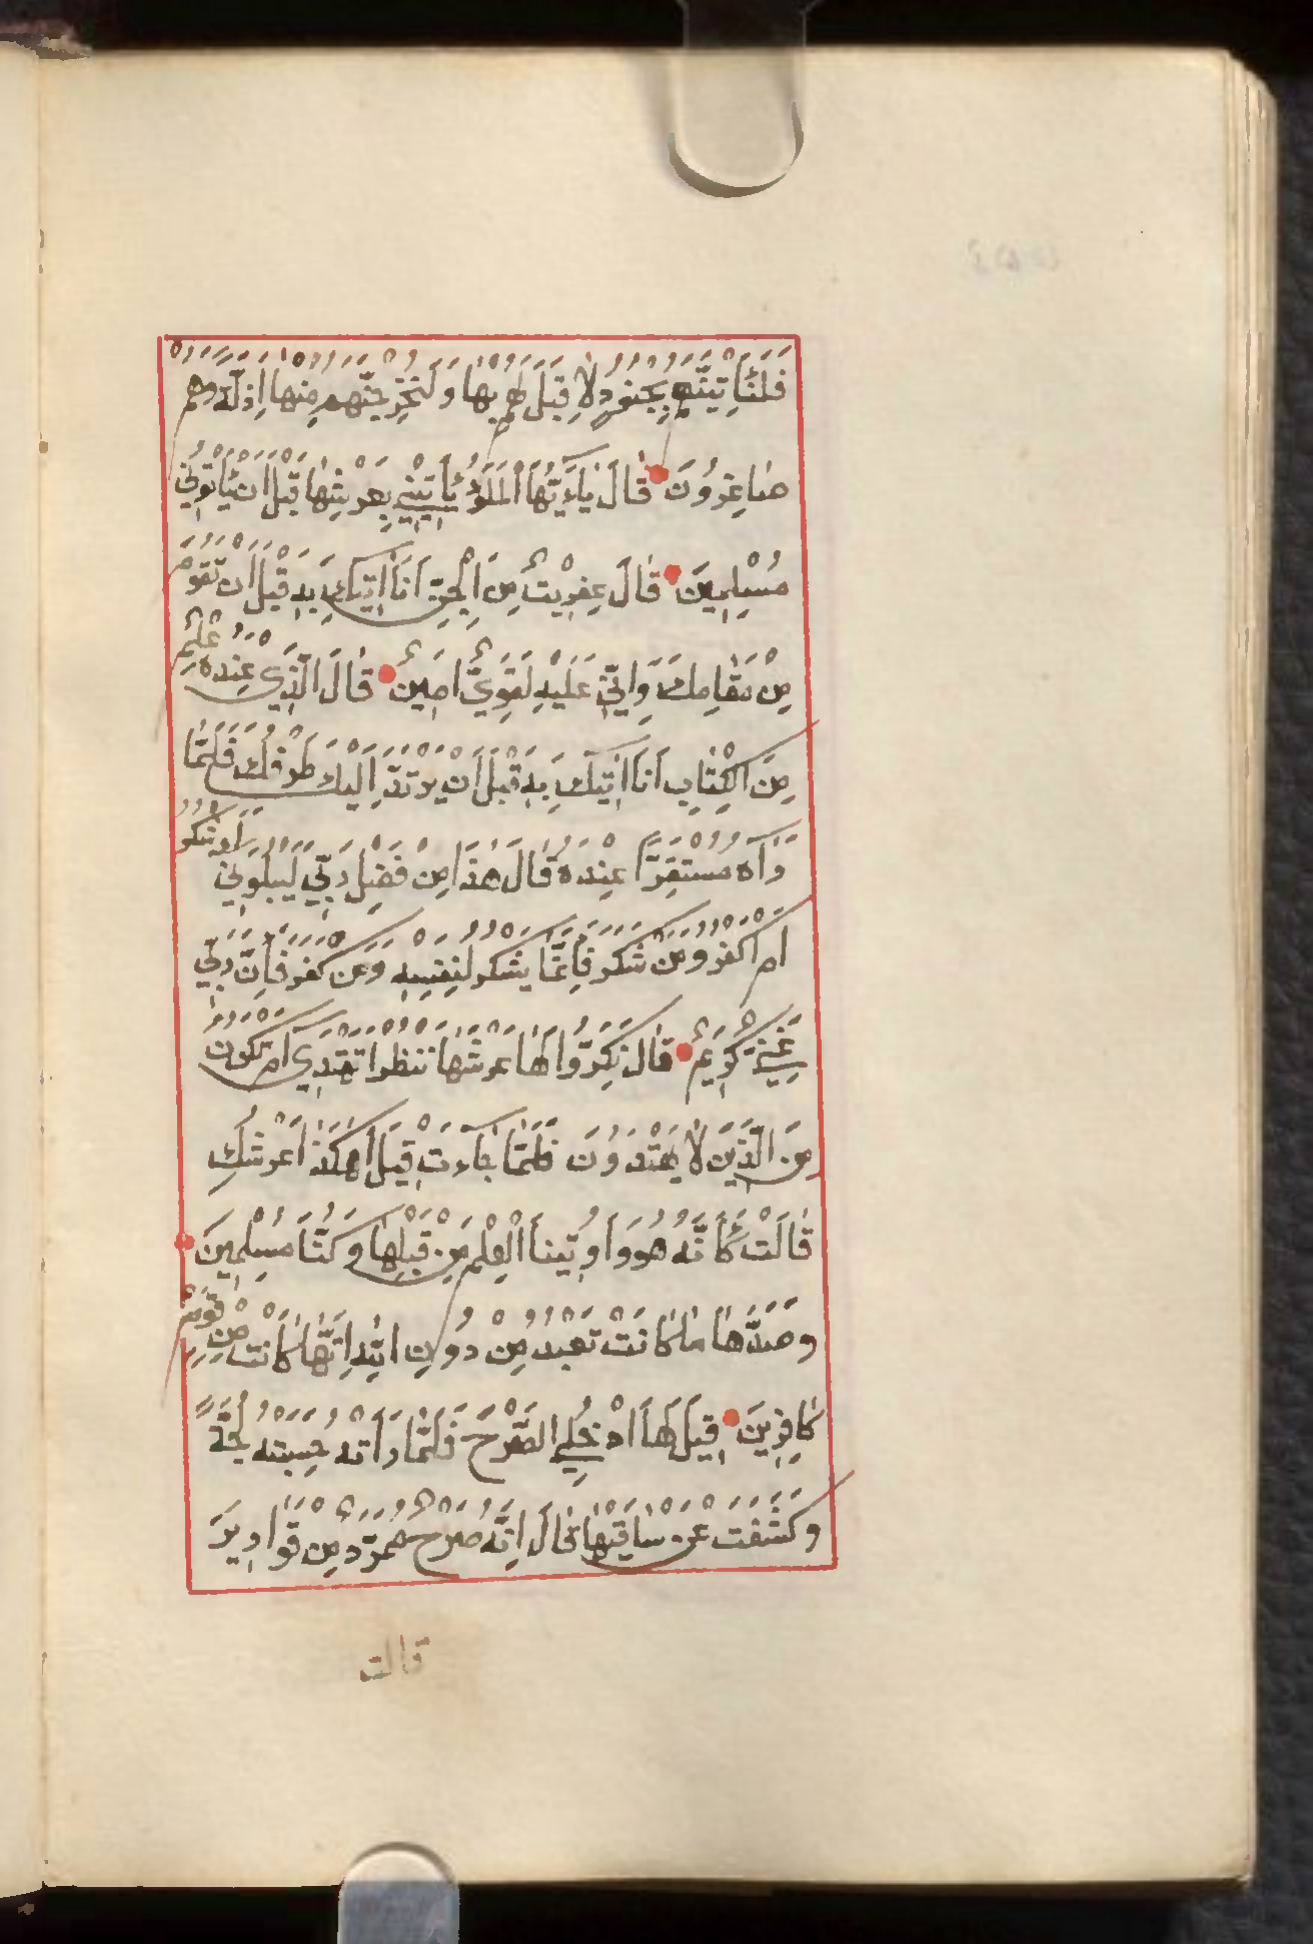 فَلَنَأْتِيَنَّهُمْ بِجُنُودٍ لَا قِبَلَ لَهُمْ بِهَا وَلَنُخْرِجَنَّهُمْ مِنْهَا اَذِلَّةً وَهُمْ
صَاغِرُونَ قَالَ يَاءَيُّهَا الْمَلَؤُا يَأْتِينِي بِعَرْشِهَا قَبْلَ اَنْ يَأْتُونِي
مُسْلِمِينَ قَالَ عِفْرِيتٌ مِنَ الْجِنِّ اَنَا اٰتِيكَ بِهِ قَبْلَ اَنْ تَقُومَ
مِنْ مَقَامِكَ وَاِنِّي عَلَيْهِ لَقَوِيٌّ اَمِينٌ قَالَ الَّذِي عِنْدَهُ عِلْمٌ
مِنَ الْكِتَابِ اَنَا اٰتِيكَ بِهِ قَبْلَ اَنْ يَرْتَدَّ اِلَيْكَ طَرْفُكَ فَلَمَّا
رَآهُ مُسْتَقِرًّا عِنْدَهُ قَالَ هٰذَا مِنْ فَضْلِ رَبِّي لِيَبْلُوَنِي ءَاَشْكُرُ
اَمْ اَكْفُرُ وَمَنْ شَكَرَ فَاِنَّمَا يَشْكُرُ لِنَفْسِهِ وَمَنْ كَفَرَ فَاِنَّ رَبِّي
غَنِيٌّ كَرِيمٌ قَالَ نَكِّرُوا لَهَا عَرْشَهَا نَنْظُرْ اَتَهْتَدِي اَمْ تَكُونُ
مِنَ الَّذِينَ لَا يَهْتَدُونَ فَلَمَّا جَاءَتْ قِيلَ اَهٰكَذَا عَرْشُكِ
قَالَتْ كَاَنَّهُ هُوَ وَاُوتِينَا الْعِلْمَ مِنْ قَبْلِهَا وَكُنَّا مُسْلِمِينَ
وَصَدَّهَا مَا كَانَتْ تَعْبُدُ مِنْ دُونِ اللّٰهِ اِنَّهَا كَانَتْ مِنْ قَوْمٍ
كَافِرِينَ قِيلَ لَهَا ادْخُلِي الصَّرْحَ فَلَمَّا رَاَتْهُ حَسِبَتْهُ لُجَّةً
وَكَشَفَتْ عَنْ سَاقَيْهَا قَالَ اِنَّهُ صَرْحٌ مُمَرَّدٌ مِنْ قَوَارِيرَ
قالت